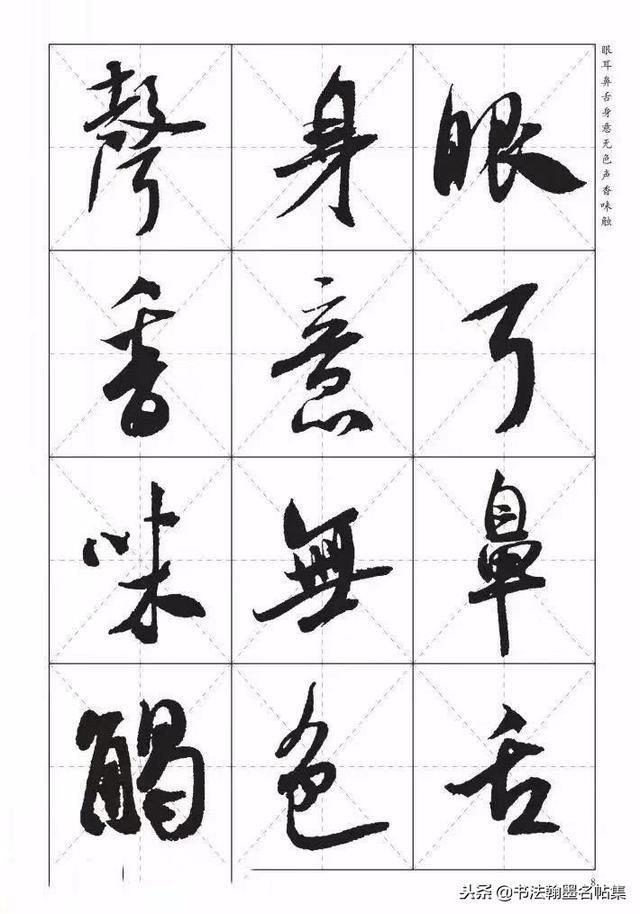 眼耳鼻舌身意无色声香味触
眼耳鼻舌
身意無色
聲香味觸
8
头条 @书法翰墨名帖集